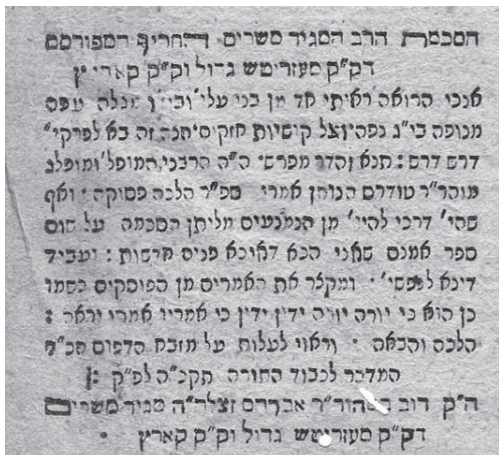 הסכמת הרב המגיד משרים החריף המפורסם
דק״ק מעזריטש גדול וק״ק קארי״ץ
אנכי הרואה ראיתי חד מן בני עלי׳
מנופה בי״ג נפה קושיות חזקים תנה זה בא לפרקי״
דרש דרש: תנא והדר מפרש ה״ה הרבני המופל׳ ומופלג
מוהר״ר טודרס הנותן אמרי ספ״ר הלכה פסוקה ואף
שהי׳ דרכי להיו׳ מן הנמנעים מליתן הסכמה על שום
ספר אמנם שאני הכא דאיכא פנים חדשות: ועביד
דינא לנפשי׳ ומקצר את האמרים מן הפוסקים כשמו
כן הוא כי יורה יורה ידין ידין כי אמריו אמרי יראר:
הלכה והבאה וראוי לעלות על מזבח הדפום הכ״ד
המדבר לכבוד התורה תקכ״ה לפ״ק
ה״ק דוב במהור״ר אברהם זצלה״ה מגיד משרים
דק״ק מעזריטש גדול וק״ק קארץ